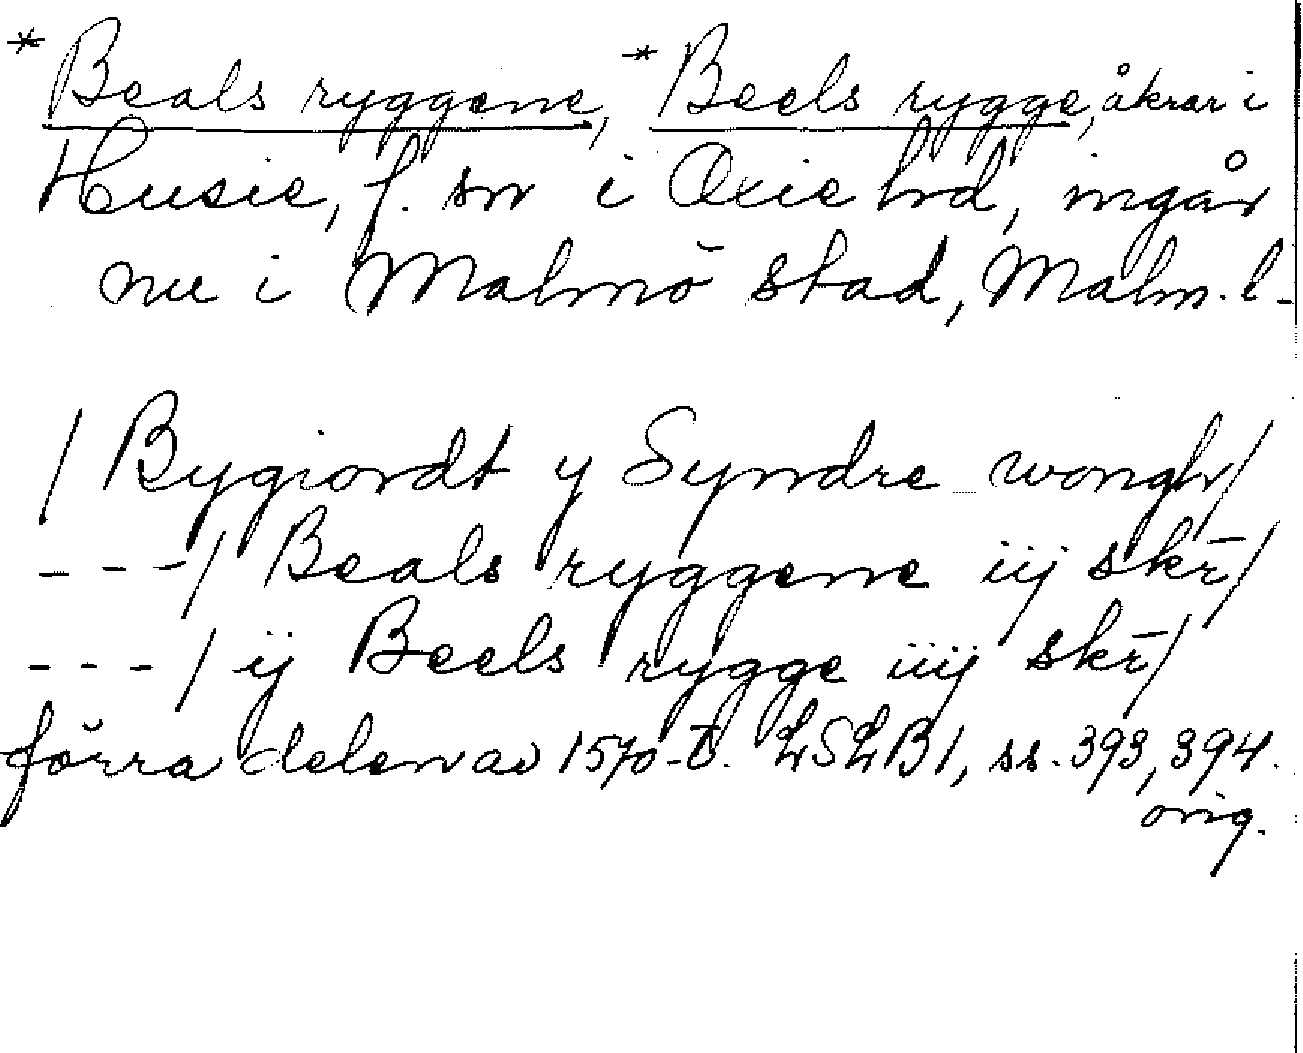 *Beals ryggene, *Beels rygge, åkrar i
Husie, f. sn i Oxie hd, ingår
nu i Malmö stad, Malm. l.
/ Bygiordt y Syndre wongh/
---/ Beals ryggene iij skr̄/
---/ ij Beels rygge iiij skr̄/
förra delen av 1570-t. LSLB1, ss. 393, 394.
orig.